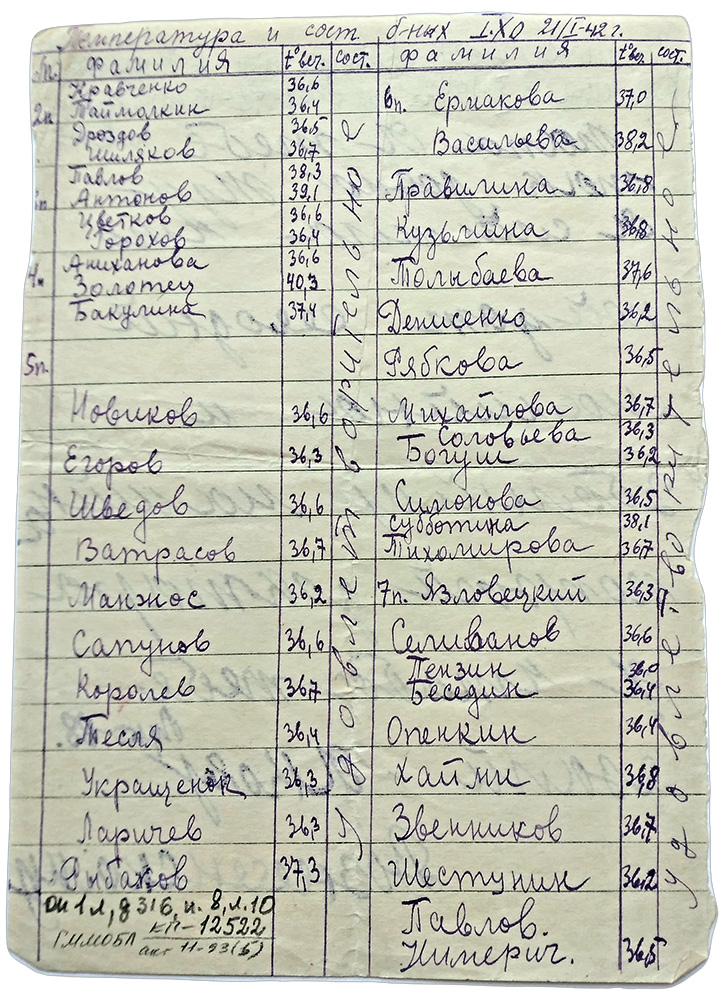 Температура и сост б-ных I.ХО 21/I-42г.
п. фамилия t°веч. сост. фамилия t°веч. сост.
Кравченко 36,6
2п Таймолкин 36,4
Дроздов 36,5
Шиляков 36,7
Павлов 38,3
Антонов 39,1
Цветков 36,6
Горохов 36,4
Аниханова 36,6
4п Золотец 40,3
Бакулина 37,4
5п.
Новиков 36,6
Егоров 36,3
Шведов 36,6
Ватрасов 36,7
Манжос 36,2
Сапунов 36,6
Королев 36,7
Тесля 36,4
Укращенок 36,3
Ларичев 36,3
Рыбаков 37,3
удовлетворительно
6п. Ермакова 37,0
Васильева 38,2
Правилина 36,8
Кузьмина 36,8
Толыбаева 37,6
Денисенко 36,2
Рябкова 36,5
Михайлова 36,7
Соловьева 36,3
Богуш 36,2
Симонова 36,5
Субботина 38,1
Тихомирова 36,7
7п. Язловецкий 36,3
Селиванов 36,6
Пензин 36,0
Беседин 36,4
Опенкин 36,4
Хайми 36,8
Звенников 36,7
Шестунин 36,2
Павлов.
Нимерич. 36,5
удовлетворительно
оп 1л, д 316, п. 8, л. 10
ГММОБЛ КП-12522
акт 11-93(б)